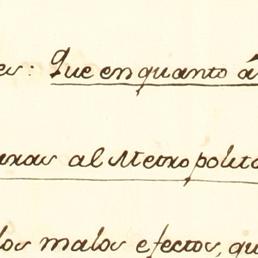 es: Que en quanto á
unas al Metropolita
los malos efectos, qu